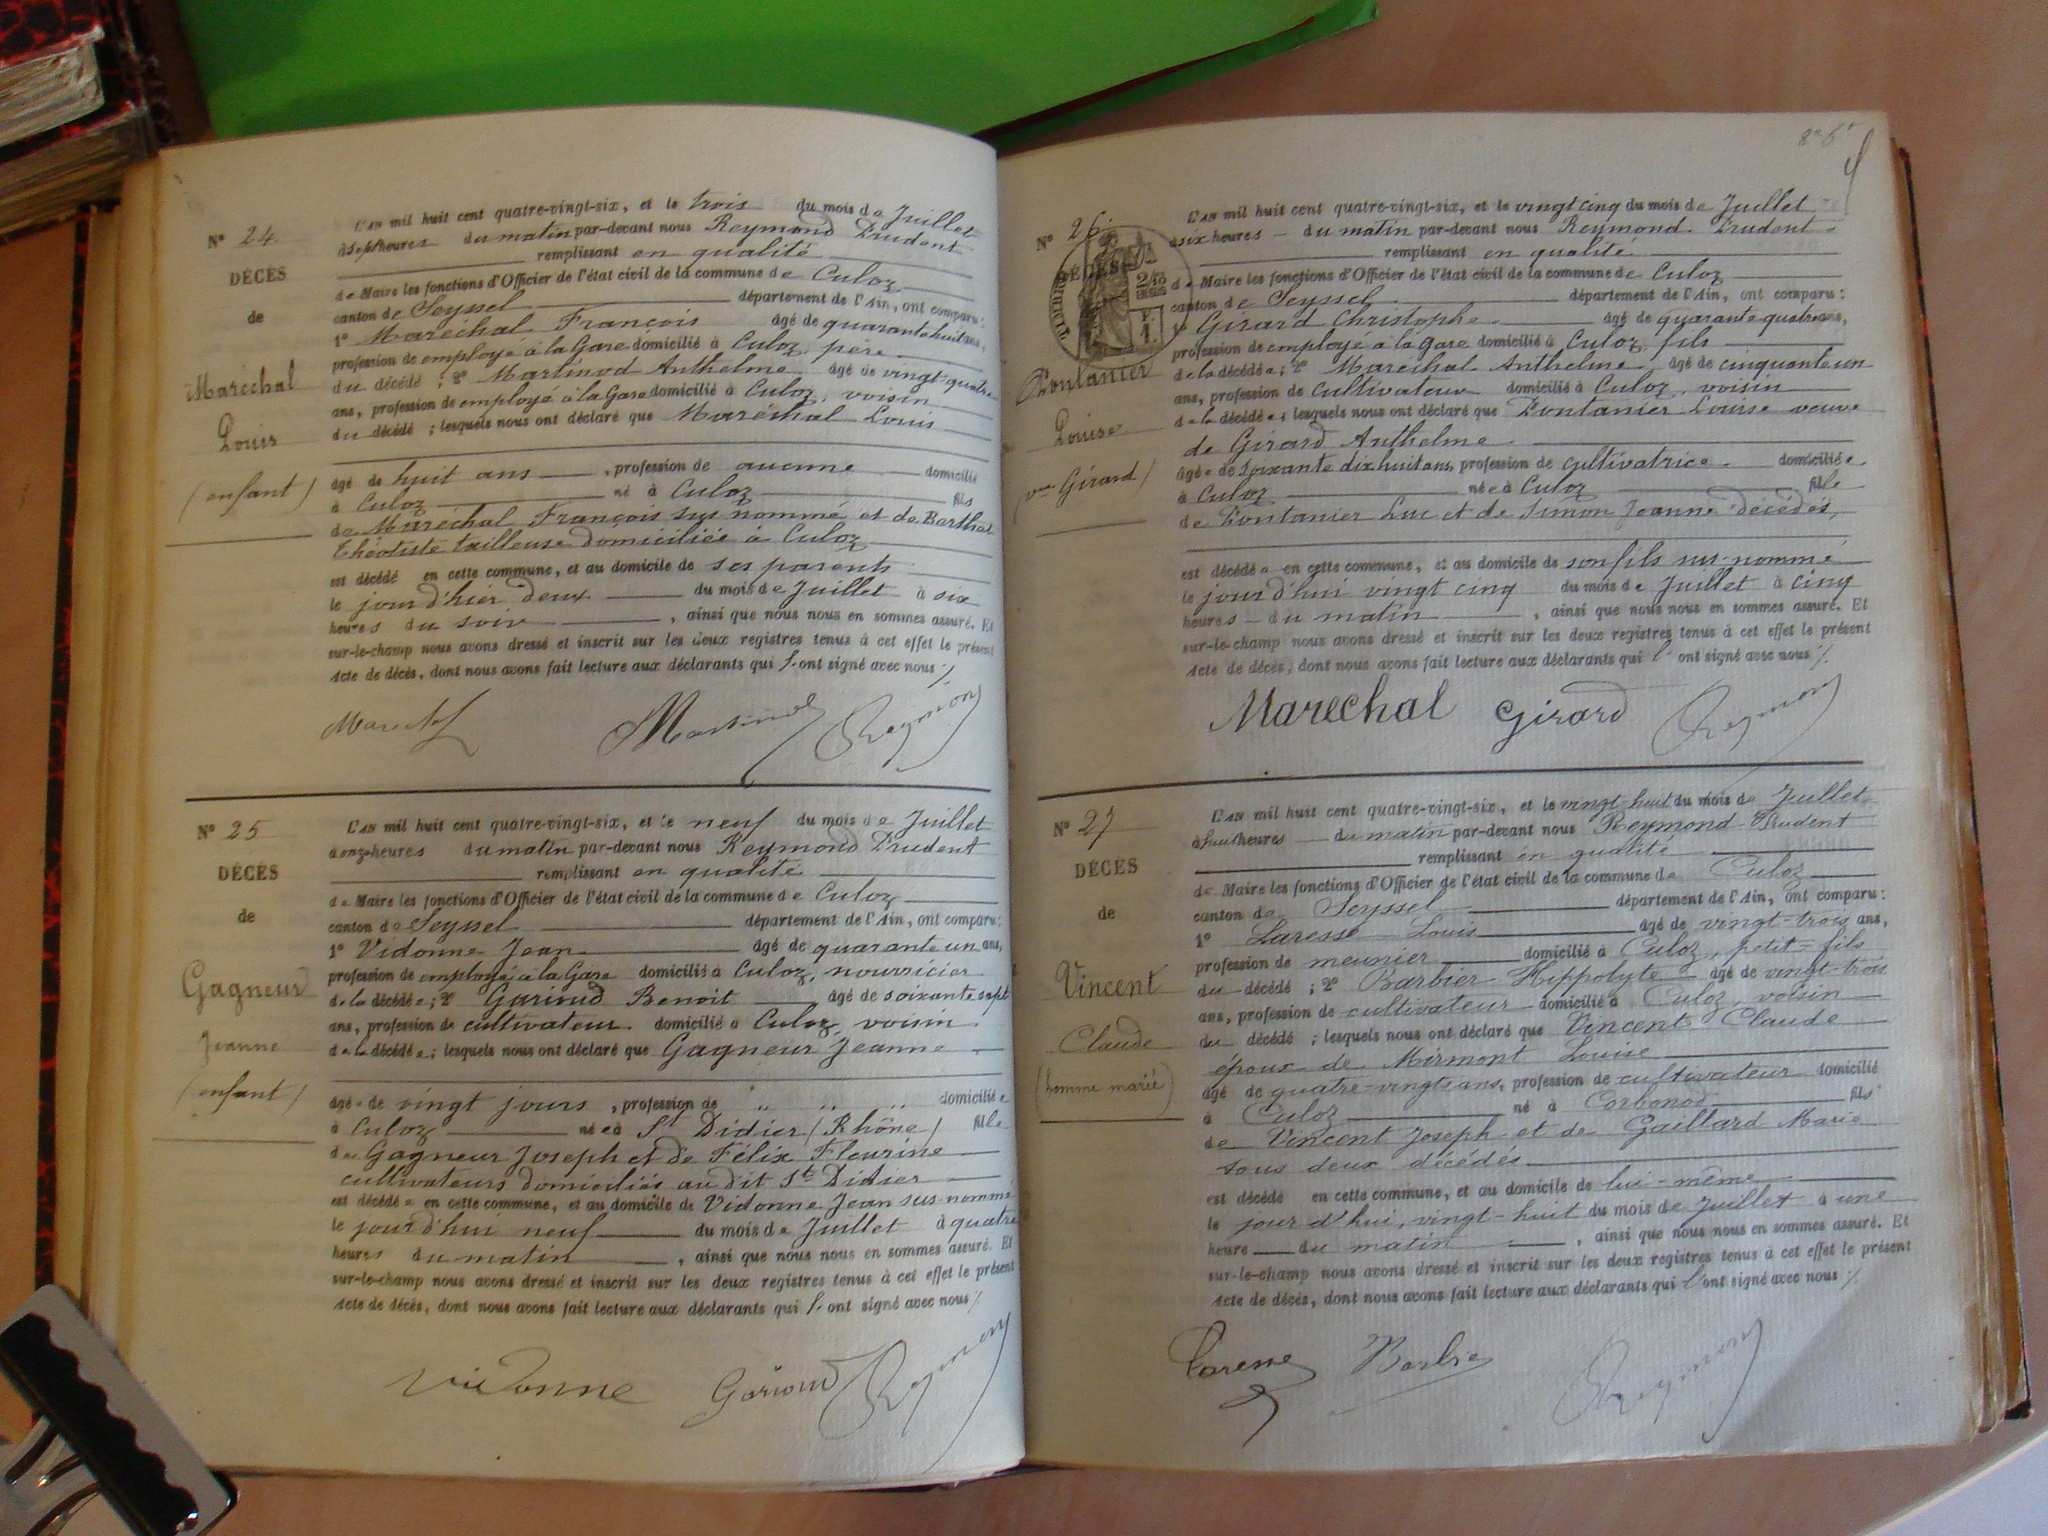 N° 24
DÉCÈS
de
Maréchal
Louis
(enfant)
L'AN mil huit cent quatre-vingt-six, et le trois du mois de Juillet
à sept heures du matin par-devant nous Reymond Prudent
remplissant en qualité
de Maire les fonctions d'Officier de l'état civil de la commune de Culoz
canton de Seyssel département de l'Ain, ont comparu:
1° Maréchal François âgé de quarante huit ans,
profession de employé à la Gare domicilié à Culoz, père
du décédé; 2° Martinod Anthelme, âgé de vingt-quatre
ans, profession de employé à la Gare domicilié à Culoz, voisin
du décédé; lesquels nous ont déclaré que Maréchal Louis
âgé de huit ans, profession de aucune domicilié
à Culoz né à Culoz fils
de Maréchal François sus nommé et de Barthel
Théotiste tailleuse domiciliée à Culoz
est décédé en cette commune, et au domicile de ses parents
le jour d'hier deux du mois de Juillet à six
heures du soir, ainsi que nous nous en sommes assuré. Et
sur-le-champ nous avons dressé et inscrit sur les deux registres tenus à cet effet le présent
Acte de décès, dont nous avons fait lecture aux déclarants qui l'ont signé avec nous ./.
Marechal Martinod Reymond
N° 25
DÉCÈS
de
Gagneur
Jeanne
(enfant)
L'AN mil huit cent quatre-vingt-six, et le neuf du mois de Juillet
à onze heures du matin par-devant nous Reymond Prudent
remplissant en qualité
de Maire les fonctions d'Officier de l'état civil de la commune de Culoz
canton de Seyssel département de l'Ain, ont comparu:
1° Vidonne Jean âgé de quarante un ans,
profession de employé à la Gare domicilié à Culoz, nourricier
de la décédée; 2° Garioud Benoit âgé de soixante sept
ans, profession de cultivateur domicilié à Culoz, voisin
de la décédée; lesquels nous ont déclaré que Gagneur Jeanne
âgée de vingt jours, profession de " " " domiciliée
à Culoz née à St Didier (Rhône) fille
de Gagneur Joseph et de Félix Fleurine
cultivateurs domiciliés au dit St Didier
est décédée en cette commune, et au domicile de Vidonne Jean sus-nommé
le jour d'hui neuf du mois de Juillet à quatre
heures du matin, ainsi que nous nous en sommes assuré. Et
sur-le-champ nous avons dressé et inscrit sur les deux registres tenus à cet effet le présent
Acte de décès, dont nous avons fait lecture aux déclarants qui l'ont signé avec nous ./.
Vidonne Garioud Reymond
N° 26
DÉCÈS
Pontanier
Louise
vve Girard)
L'AN mil huit cent quatre-vingt-six, et le vingt cinq du mois de Juillet
à six heures du matin par-devant nous Reymond Prudent
remplissant en qualité
de Maire les fonctions d'Officier de l'état civil de la commune de Culoz
canton de Seyssel département de l'Ain, ont comparu:
1° Girard Christophe âgé de quarante quatre ans,
profession de employé à la gare domicilié à Culoz, fils
de la décédée; 2° Maréchal Anthelme, âgé de cinquante un
ans, profession de cultivateur domicilié à Culoz, voisin
de la décédée; lesquels nous ont déclaré que Pontanier Louise veuve
de Girard Anthelme
âgée de soixante dix huit ans, profession de cultivatrice domiciliée
à Culoz née à Culoz fille
de Pontanier Luc et de Simon Jeanne décédés,
est décédée en cette commune, et au domicile de son fils sus-nommé
le jour d'hui vingt cinq du mois de Juillet à cinq
heures du matin, ainsi que nous nous en sommes assuré. Et
sur-le-champ nous avons dressé et inscrit sur les deux registres tenus à cet effet le présent
Acte de décès, dont nous avons fait lecture aux déclarants qui l'ont signé avec nous ./.
Marechal Girard Reymond
N° 27
DÉCÈS
de
Vincent
Claude
(homme marié)
L'AN mil huit cent quatre-vingt-six, et le vingt-huit du mois de Juillet
à huit heures du matin par-devant nous Reymond Prudent
remplissant en qualité
de Maire les fonctions d'Officier de l'état civil de la commune de Culoz
canton de Seyssel département de l'Ain, ont comparu:
1° Laresse Louis âgé de vingt-trois ans,
profession de meunier domicilié à Culoz, petit-fils
du décédé; 2° Barbier Hippolyte âgé de vingt-trois
ans, profession de cultivateur domicilié à Culoz, voisin
du décédé; lesquels nous ont déclaré que Vincent Claude
époux de Mirmont Louise
âgé de quatre-vingts ans, profession de cultivateur domicilié
à Culoz né à Corbonod fils
de Vincent Joseph et de Gaillard Marie
tous deux décédés
est décédé en cette commune, et au domicile de lui-même
le jour d'hui, vingt-huit du mois de Juillet à une
heure du matin, ainsi que nous nous en sommes assuré. Et
sur-le-champ nous avons dressé et inscrit sur les deux registres tenus à cet effet le présent
Acte de décès, dont nous avons fait lecture aux déclarants qui l'ont signé avec nous ./.
Laresse Reymond